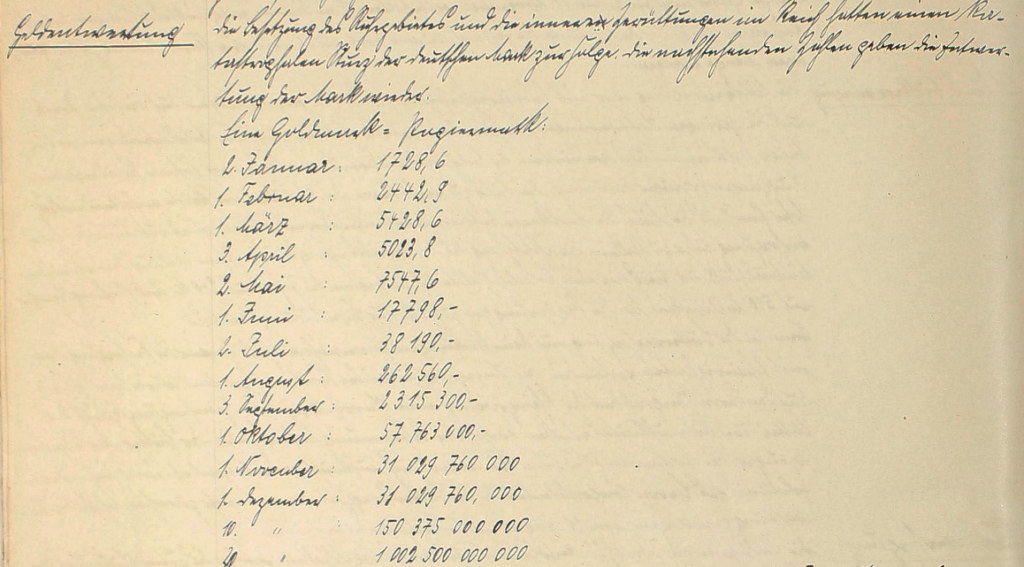 Geldentwertung
die Besetzung des Ruhrgebietes und die inneren Zerrüttungen im Reich hatten einen Ka-
tastrophalen Sturz der deutschen Mark zur Folge. die nachstehenden Zahlen geben die Entwer-
tung der Mark wieder.
Eine Goldmark = Papiermark:
2. Januar : 1728,6
1. Februar : 2442,9
1. März : 5428,6
3. April : 5023,8
2. Mai : 7547,6
1. Juni : 17798,-
2. Juli : 38 190,-
1. August : 262 560,-
3. September : 2315 300,-
1. Oktober : 57.763 000,-
1. November : 31 029 760 000
1. dezember : 31 029 760. 000
10. " : 150 375 000 000
" 1 002 500 000 000